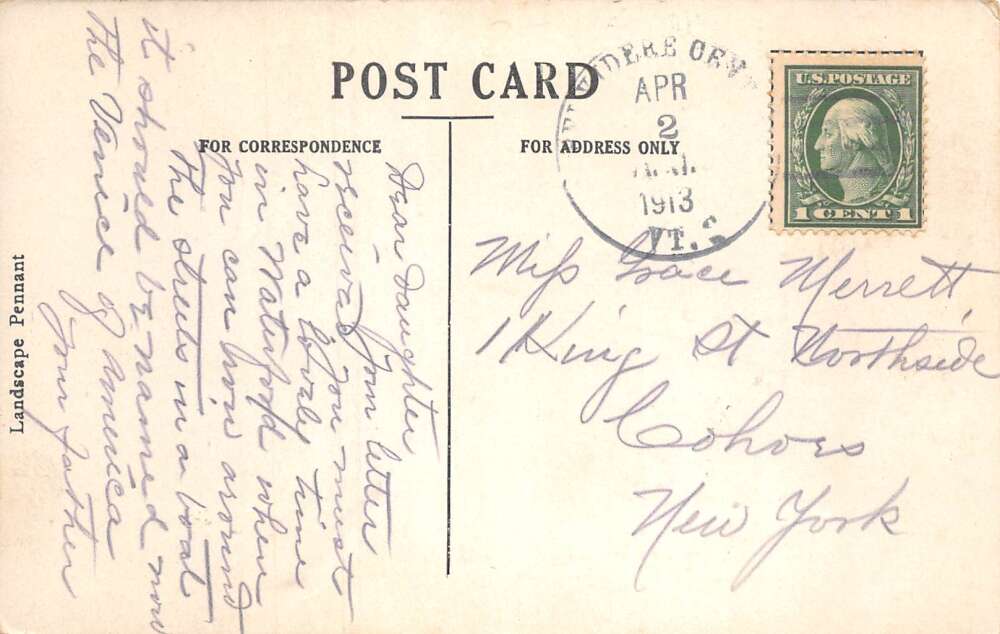 POST CARD
FOR CORRESPONDENCE
FOR ADDRESS ONLY
U.S. POSTAGE
1 CENT 1
APR
2
1913
VT.
Miss Grace Merrett,
1 King St Northside
Cohoes
New York
Dear Daughter
Your letter
received you must
have a lovely time
in Waterford when
you can row around
the streets in a boat
it should be named now
the Venice of America
Your Father
Landscape Pennant